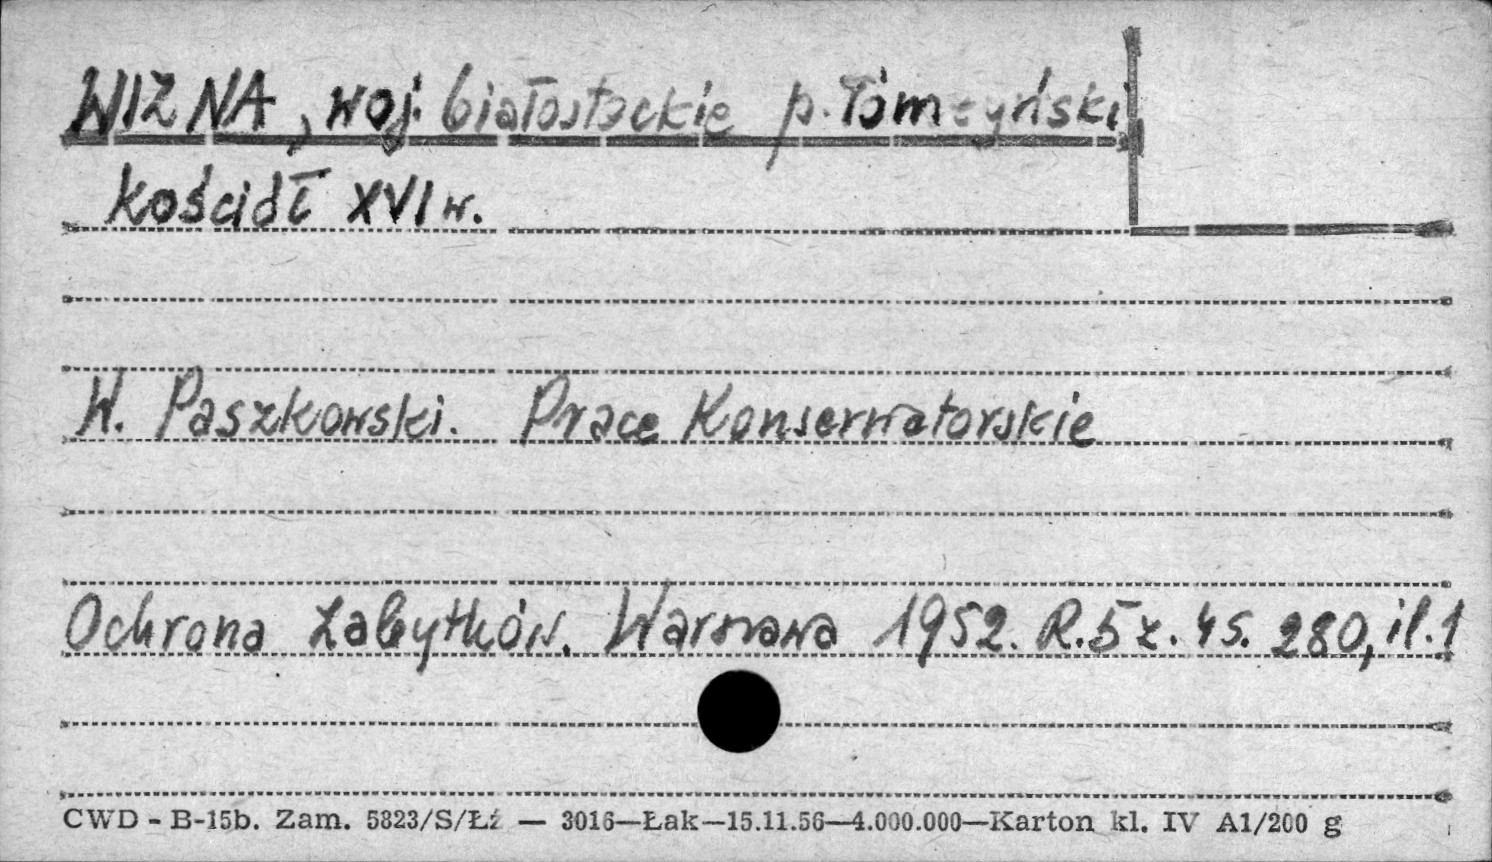 WIZNA, woj. białostockie p. łomżyński
kościół XVI w.
W. Paszkowski. Prace Konserwatorskie
Ochrona Zabytków. Warszawa 1952. R.5 z. 4 s. 280, il.1
CWD - B-15b. Zam. 5823/S/Łź — 3016—Łak—15.11.56—4.000.000—Karton kl. IV A1/200 g